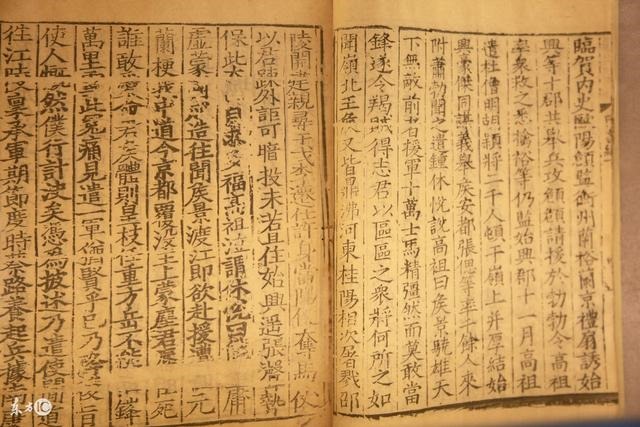 臨賀內史歐陽頠監衡州蘭裕蘭京禮扇誘始
興等十郡共舉兵攻頠頠請援於勃勃令高祖
率衆救之悉擒裕等仍監始興郡十一月高祖
遣杜僧明胡頴將二千人頓于嶺上并厚結始
興豪傑同謀義舉侯安都張偲等率千餘人來
附蕭勃聞之遣鍾休悅說高祖曰侯景驍雄天
下無敵前者援軍十萬士馬精彊然而莫敢當
鋒遂令羯賊得志君以區區之衆將何所之如
聞嶺北王侯又皆鼎沸河東桂陽相次屠戮邵
陵開建親尋干戈李遷仕許身當陽便奪馬仗
以君疎外詎可暗投未若且住始興遥張聲勢
保此太山自求多福高祖泣謂休悅曰僕本庸
虛蒙國成造往聞侯景渡江即欲赴援遭值元
蘭梗我中道今京都覆没主上蒙塵君辱臣死
誰敢愛命君侯體則皇枝任重方岳不能摧鋒
萬里雪此冤痛見遣一軍猶賢乎已乃降後旨
使人慨然僕行計決矣憑為披述乃遣使間道
往江陵稟承軍期節度時蔡路養起兵據南
東方IC